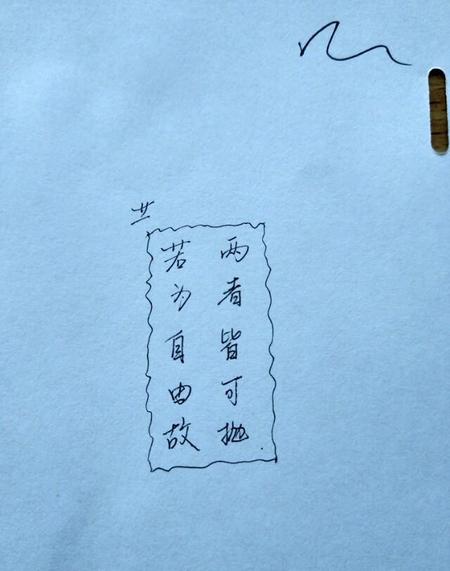 若为自由故
两者皆可抛